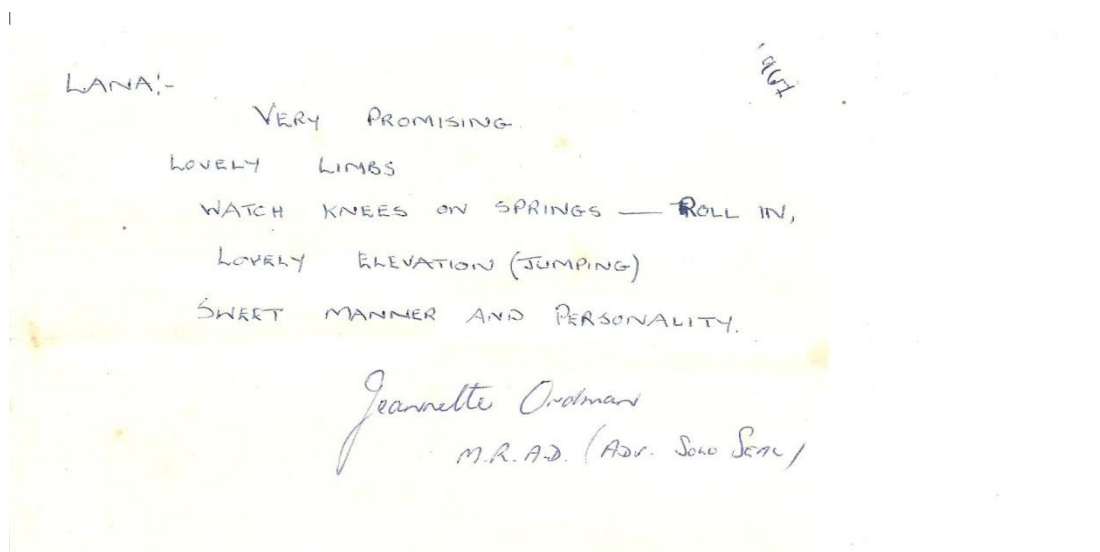 1967
LANA:-
VERY PROMISING.
LOVELY LIMBS
WATCH KNEES ON SPRINGS — ROLL IN,
LOVELY ELEVATION (JUMPING)
SWEET MANNER AND PERSONALITY.
Jeannette Ordman
M.R.A.D. (ADV. SOLO SEAL)